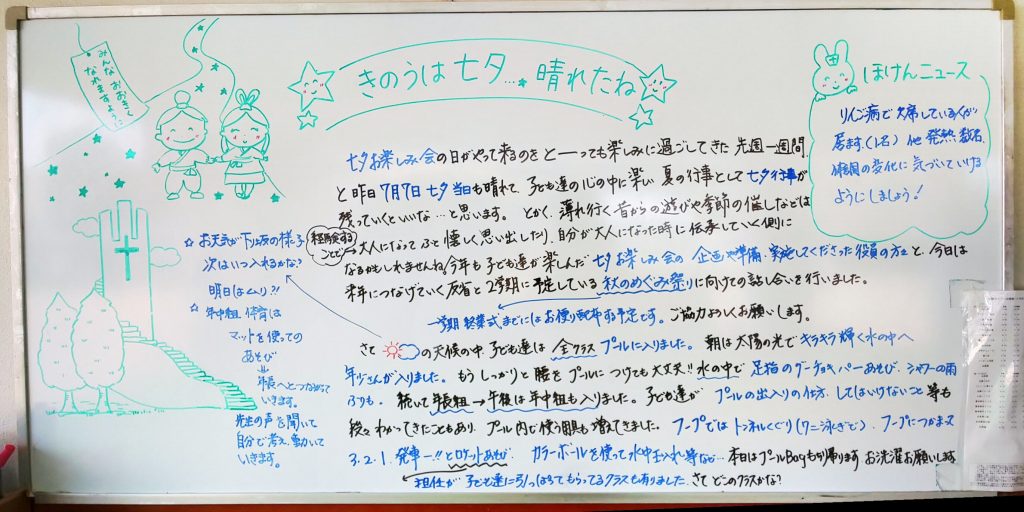 みんな おおきく
なれますように
きのうは七夕…晴れたね
ほけんニュース
リンゴ病で欠席している人が
居ます(1名) 他 発熱 数名
体調の変化に気づいていける
ようにしましょう！
七夕お楽しみ会の日がやって来るのをと――っても楽しみに過ごしてきた先週一週間
と昨日7月7日七夕当日も晴れて、子ども達の心の中に楽しい夏の行事として七夕行事が
残っていくといいな…と思います。とかく、薄れ行く昔からの遊びや季節の催しなどは
経験することで
→大人になってふと懐しく思い出したり、自分が大人になった時に伝承していく側に
なるかもしれませんね。今年も子ども達が楽しんだ七夕お楽しみ会の企画や準備・実施してくださった役員の方と、今日は
来年につなげていく反省と2学期に予定している秋のめぐみ祭りに向けての話し合いを行いました。
一学期終業式までにはお便り配布する予定です。ご協力よろしくお願いします。
さて の天候の中、子ども達は全クラスプールに入りました。朝は太陽の光でキラキラ輝く水の中へ
年少さんが入りました。もうしっかりと腰をプールにつけても大丈夫!!水の中で足指のグーチョキパーあそび、シャワーの雨
ふりも。続いて年長組→午後は年中組も入りました。子ども達がプールの出入りの仕方、してはいけないこと等も
段々わかってきたこともあり、プール内で使う用具も増えてきました。フープではトンネルくぐり(ワニ泳ぎで)、フープにつかまって
3.2.1.発車ー!!とロケットあそび、カラーボールを使って水中玉入れ等など…本日はプールBagも切帰ります お洗濯お願いします
担任が子ども達に引っぱってもらってるクラスも有りました。さてどのクラスかな？
☆お天気が下り坂の様子
次はいつ入れるかな？
明日はムリ!!
☆年中組 体育は
マットを使っての
あそび
⇓
年長へとつなめて
いきます。
先生の声を聞いて
自分で考え、動いて
いきます。